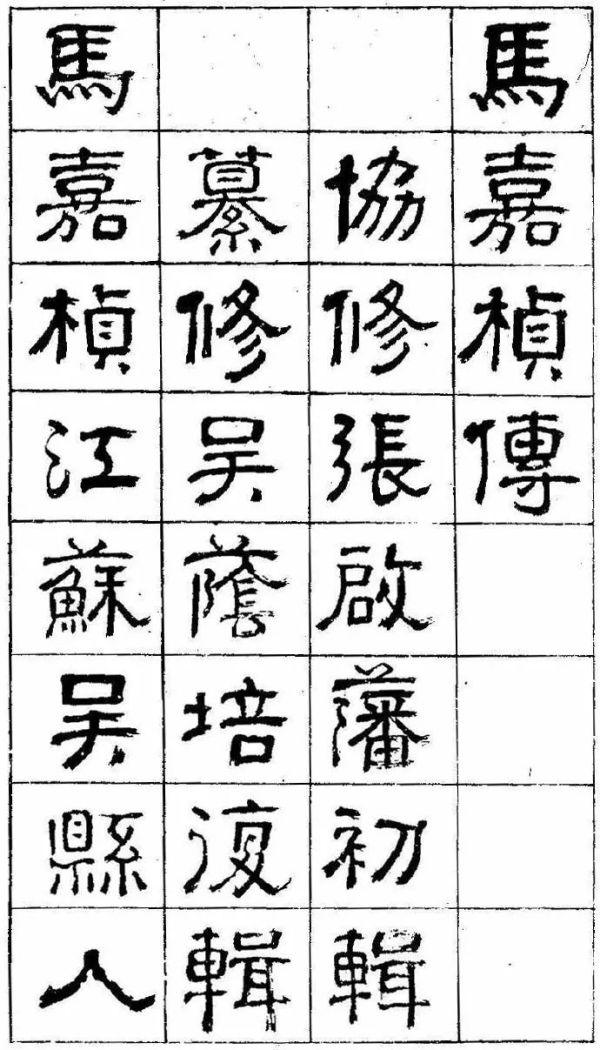 馬嘉楨傳
協修張啟藩初輯
纂修吴蔭培復輯
馬嘉楨江蘇吴縣人